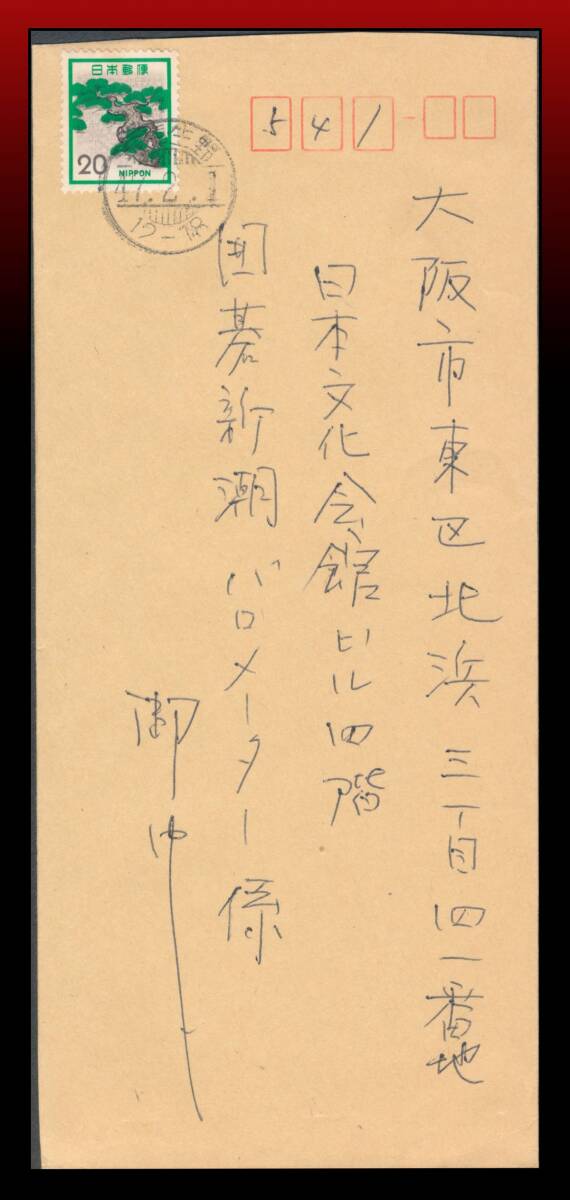 日本郵便
20
NIPPON
47.2.1
12-18
541
大阪市東区北浜三丁目四一番地
日本文化会館ビル四階
囲碁新潮バロメーター係
御中